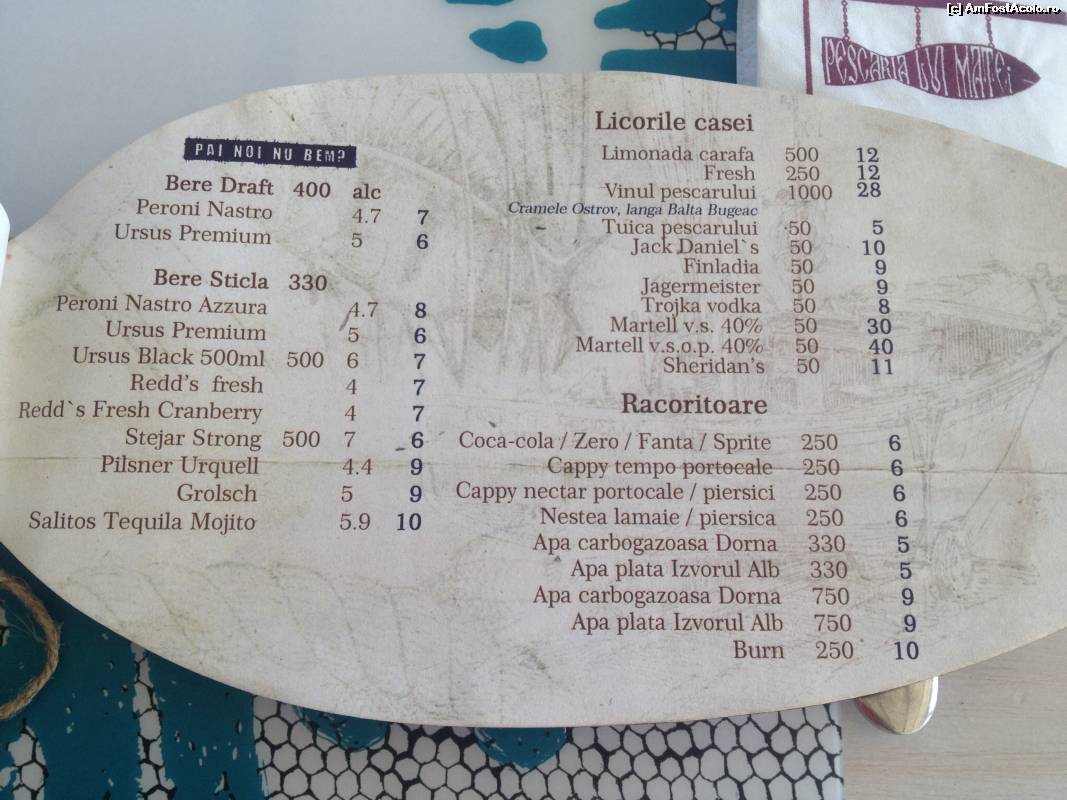 [c] AmFostAcolo.ro
PESCARIA LUI MATEI
PAI NOI NU BEM?
Bere Draft 400 alc
Peroni Nastro 4.7 7
Ursus Premium 5 6
Bere Sticla 330
Peroni Nastro Azzura 4.7 8
Ursus Premium 5 6
Ursus Black 500ml 500 6 7
Redd's fresh 4 7
Redd`s Fresh Cranberry 4 7
Stejar Strong 500 7 6
Pilsner Urquell 4.4 9
Grolsch 5 9
Salitos Tequila Mojito 5.9 10
Licorile casei
Limonada carafa 500 12
Fresh 250 12
Vinul pescarului 1000 28
Cramele Ostrov, langa Balta Bugeac
Tuica pescarului 50 5
Jack Daniel`s 50 10
Finladia 50 9
Jagermeister 50 9
Trojka vodka 50 8
Martell v.s. 40% 50 30
Martell v.s.o.p. 40% 50 40
Sheridan's 50 11
Racoritoare
Coca-cola / Zero / Fanta / Sprite 250 6
Cappy tempo portocale 250 6
Cappy nectar portocale / piersici 250 6
Nestea lamaie / piersica 250 6
Apa carbogazoasa Dorna 330 5
Apa plata Izvorul Alb 330 5
Apa carbogazoasa Dorna 750 9
Apa plata Izvorul Alb 750 9
Burn 250 10